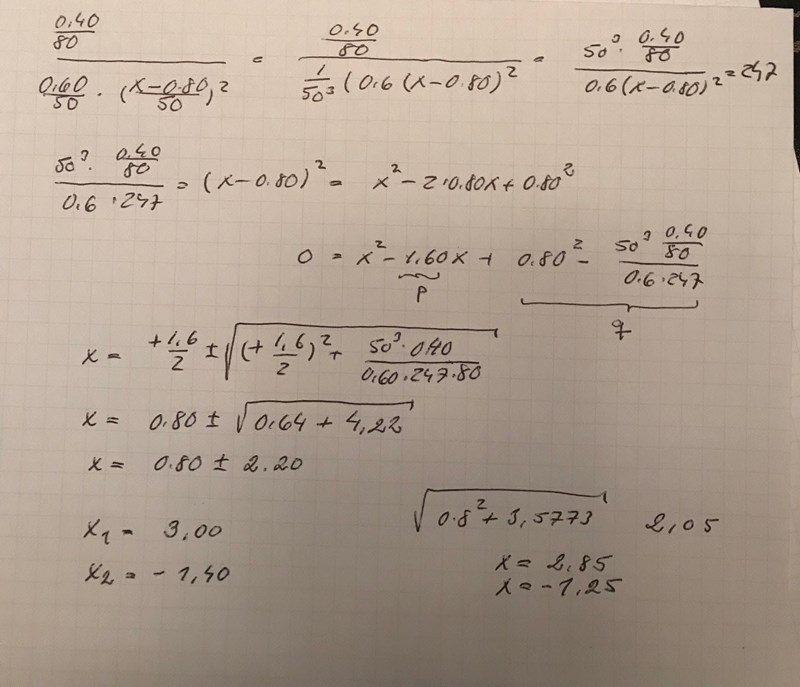 (0.40/80) / (0.60/50 · ((x-0.80)/50)²) = (0.40/80) / (1/50³ (0.6 (x-0.80)²) = (50³ · 0.40/80) / (0.6(x-0.80)²) = 247
(50³ · 0.40/80) / (0.6 · 247) = (x-0.80)² = x² - 2·0.80x + 0.80²
0 = x² - 1.60x + 0.80² - (50³ 0.40/80) / (0.6·247)
p q
x = +1.6/2 ± √((+1.6/2)² + (50³·0.40)/(0.60·247·80))
x = 0.80 ± √(0.64 + 4,22)
x = 0.80 ± 2.20
x₁ = 3,00
x₂ = -1,40
√(0.8² + 3,5773) 2,05
x = 2,85
x = -1,25